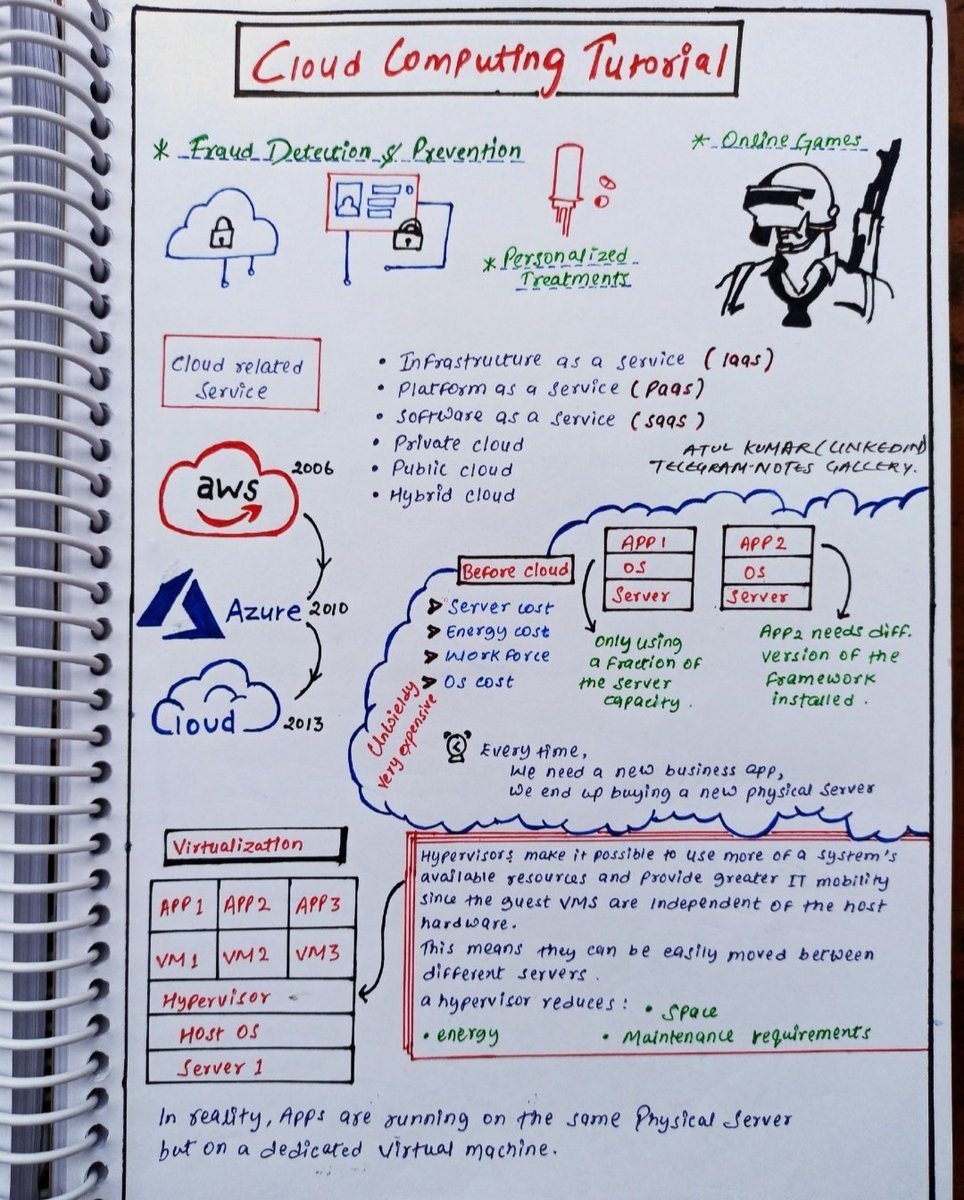 Cloud Computing Tutorial
* Fraud Detection & Prevention
* Personalized
Treatments
* Online Games
Cloud related
Service
• Infrastructure as a service (Iaas)
• Platform as a service (Paas)
• Software as a service (saas)
• Private cloud
• Public cloud
• Hybrid cloud
ATUL KUMAR (LINKEDIN)
TELEGRAM-NOTES GALLERY.
aws
2006
Azure 2010
Cloud
2013
Before cloud
➤ Server cost
➤ Energy cost
➤ Workforce
➤ OS cost
Unwieldy
very expensive
APP 1
OS
Server
APP 2
OS
Server
only using
a fraction of
the server
capacity.
App2 needs diff.
version of the
framework
installed.
Every time,
We need a new business app,
We end up buying a new physical server
Virtualization
APP 1 APP 2 APP 3
VM 1 VM 2 VM 3
Hypervisor
Host OS
Server 1
Hypervisors make it possible to use more of a system's
available resources and provide greater IT mobility
since the guest VMS are independent of the host
hardware.
This means they can be easily moved between
different servers.
a hypervisor reduces: • Space
• energy • Maintenance requirements
In reality, Apps are running on the same Physical Server
but on a dedicated virtual machine.